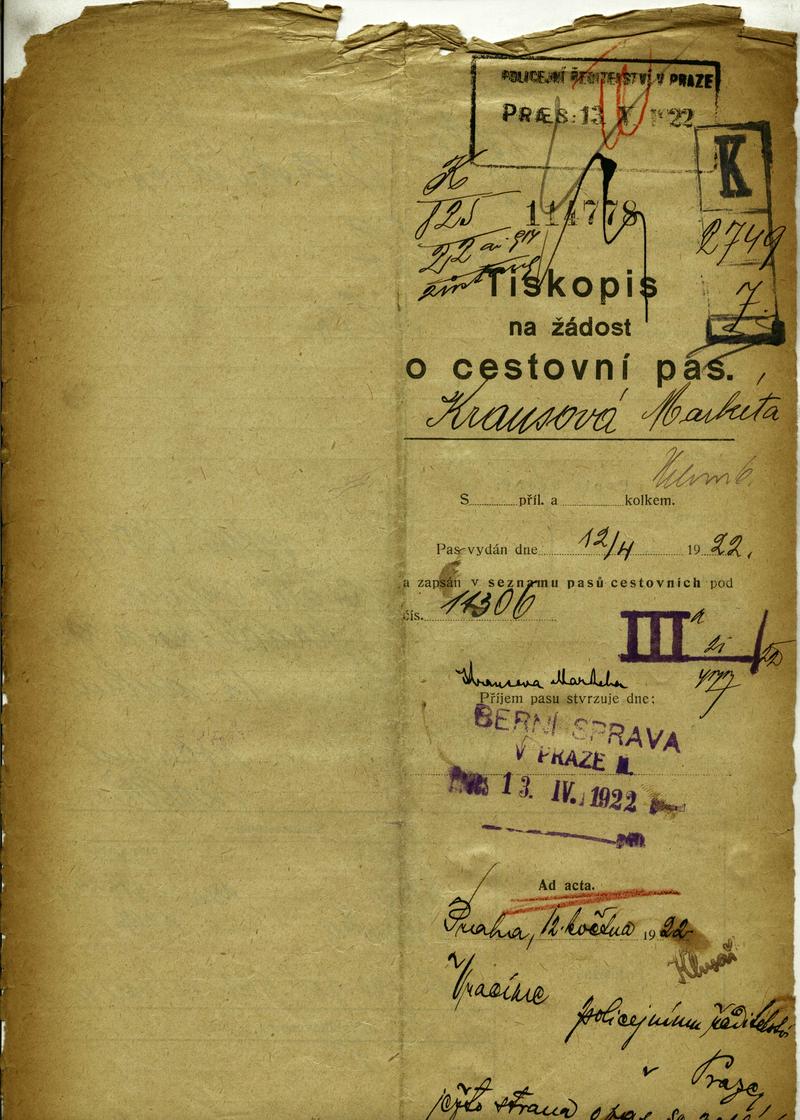 POLICEJNÍ ŘEDITELSTVÍ V PRAZE
PRÆS: 13 V. 1922
K
K
125
114778
22
2749
7.
Tiskopis
na žádost
o cestovní pas.
Krausová Markéta
S příl. a kolkem.
Pas vydán dne 12/4 1922.
a zapsán v seznamu pasů cestovních pod
čís. 11306
III a
Krausova Marketa
Příjem pasu stvrzuje dne:
BERNÍ SPRÁVA
V PRAZE II.
13. IV. 1922
Ad acta.
Praha, 12. května 1922
Vracíme
policejnímu ředitelství
v Praze,
strana